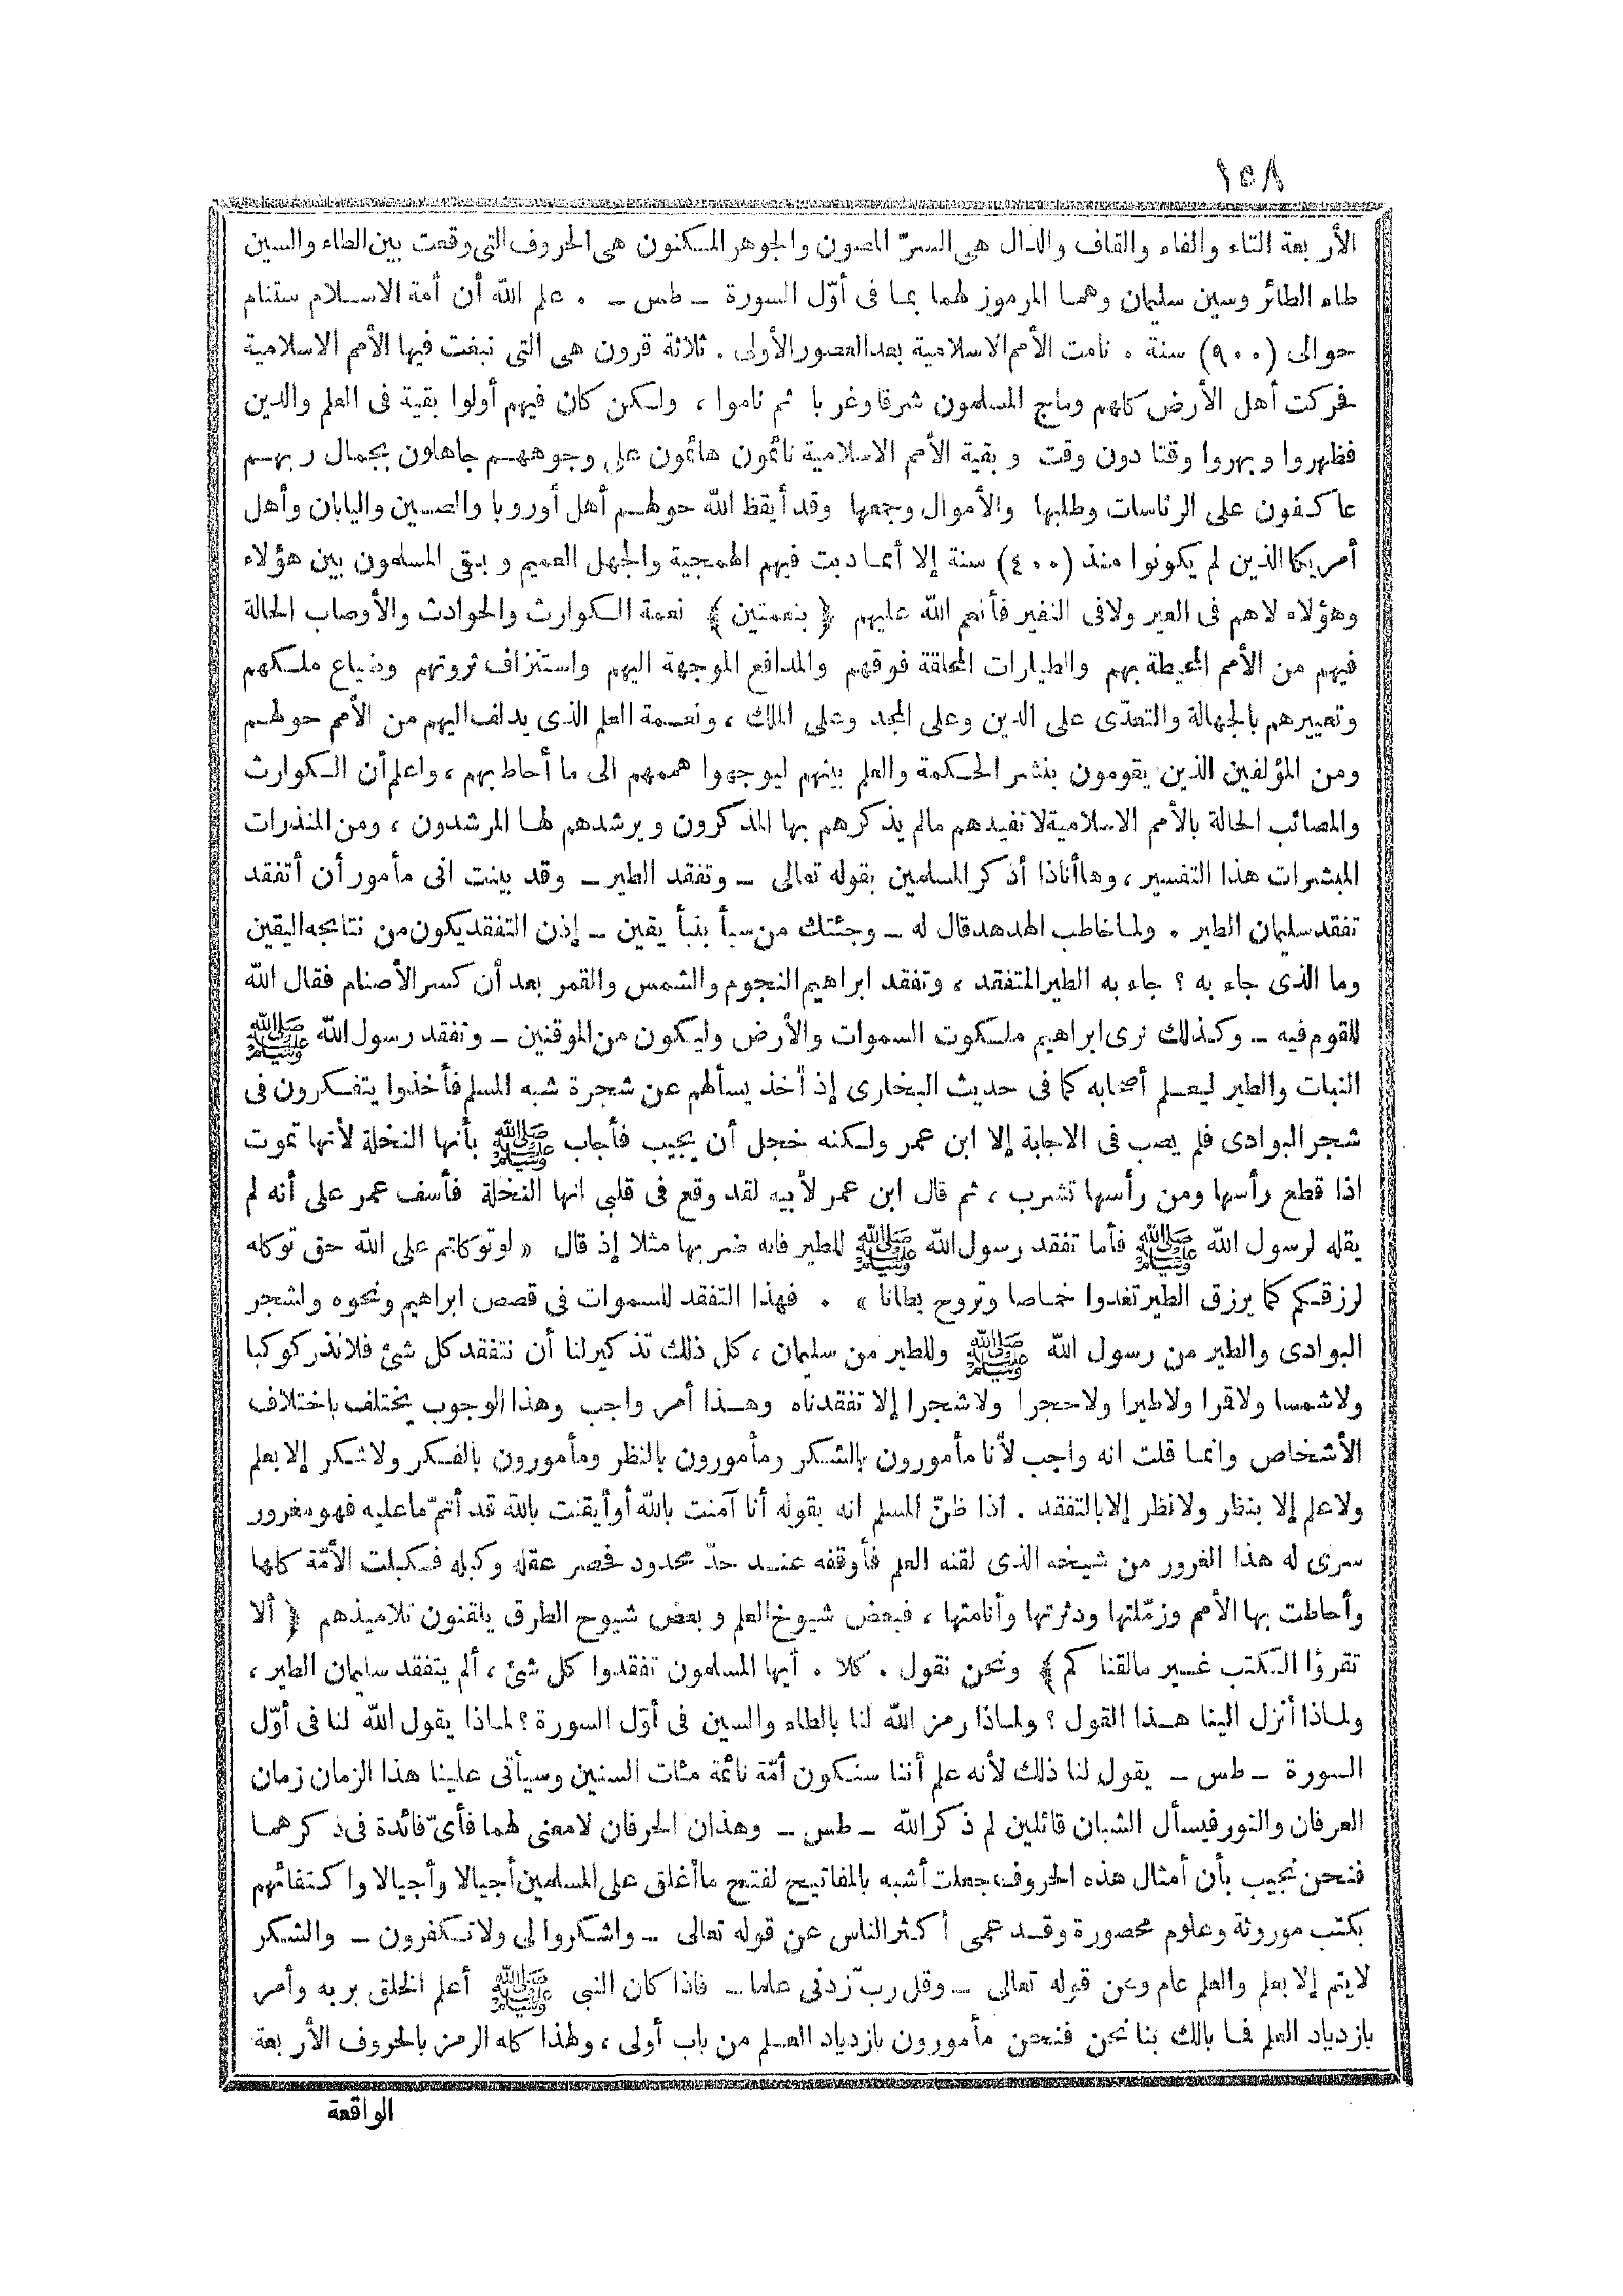 ١٥٨
الأربعة التاء والفاء والقاف والدال هى السرّ المصون والجوهر المكنون هى الحروف التى وقعت بين الطاء والسين
طاء الطائر وسين سليمان وهما المرموز لهما بما فى أوّل السورة ــ طس ــ . علم الله أن أمة الاسلام ستنام
حوالى (٩٠٠) سنة . نامت الأمم الاسلامية بعد العصور الأولى . ثلاثة قرون هى التى نبغت فيها الأمم الاسلامية
فحركت أهل الأرض كلهم وماج المسلمون شرقا وغربا ثم ناموا ، ولكن كان فيهم أولوا بقية فى العلم والدين
فظهروا وبهروا وقتا دون وقت وبقية الأمم الاسلامية نائمون هائمون على وجوههم جاهلون بجمال ربهم
عاكفون على الرئاسات وطلبها والأموال وجمعها وقد أيقظ الله حولهم أهل أوروبا والصين واليابان وأهل
أمريكا الذين لم يكونوا منذ (٤٠٠) سنة إلا أمما دبت فيهم الهمجية والجهل العميم وبقى المسلمون بين هؤلاء
وهؤلاء لاهم فى العير ولا فى النفير فأنعم الله عليهم ﴿ بنعمتين ﴾ نعمة الكوارث والحوادث والأوصاب الحالة
فيهم من الأمم المحيطة بهم والطيارات المحلقة فوقهم والمدافع الموجهة اليهم واستنزاف ثروتهم وضياع ملكهم
وتعييرهم بالجهالة والتعدّى على الدين وعلى المجد وعلى الملك ، ونعمة العلم الذى يدلف اليهم من الأمم حولهم
ومن المؤلفين الذين يقومون بنشر الحكمة والعلم بينهم ليوجهوا هممهم الى ما أحاط بهم ، واعلم أن الكوارث
والمصائب الحالة بالأمم الاسلامية لا تفيدهم مالم يذكرهم بها المذكرون ويرشدهم لها المرشدون ، ومن المنذرات
المبشرات هذا التفسير ، وها أناذا أذكر المسلمين بقوله تعالى ــ وتفقد الطير ــ وقد بينت انى مأمور أن أتفقد
تفقد سليمان الطير . ولما خاطب الهدهد قال له ــ وجئتك من سبأ بنبأ يقين ــ إذن التفقد يكون من نتائجه اليقين
وما الذى جاء به ؟ جاء به الطير المتفقد ، وتفقد ابراهيم النجوم والشمس والقمر بعد أن كسر الأصنام فقال الله
للقوم فيه ــ وكذلك نرى ابراهيم ملكوت السموات والأرض وليكون من الموقنين ــ وتفقد رسول الله ﷺ
النبات والطير ليعلم أصحابه كما فى حديث البخارى إذ أخذ يسألهم عن شجرة شبه المسلم فأخذوا يتفكرون فى
شجر البوادى فلم يصب فى الاجابة إلا ابن عمر ولكنه خجل أن يجيب فأجاب ﷺ بأنها النخلة لأنها تموت
اذا قطع رأسها ومن رأسها تشرب ، ثم قال ابن عمر لأبيه لقد وقع فى قلبى انها النخلة فأسف عمر على أنه لم
يقله لرسول الله ﷺ فأما تفقد رسول الله ﷺ للطير فانه ضرب بها مثلا إذ قال « لو توكلتم على الله حق توكله
لرزقكم كما يرزق الطير تغدوا خماصا وتروح بطانا » . فهذا التفقد للسموات فى قصص ابراهيم ونحوه ولشجر
البوادى والطير من رسول الله ﷺ وللطير من سليمان ، كل ذلك تذكير لنا أن نتفقد كل شئ فلا نذر كوكبا
ولا شمسا ولا قمرا ولا طيرا ولا حجرا ولا شجرا إلا تفقدناه وهذا أمر واجب وهذا الوجوب يختلف باختلاف
الأشخاص وانما قلت انه واجب لأنا مأمورون بالشكر ومأمورون بالنظر ومأمورون بالفكر ولا شكر إلا بعلم
ولا علم إلا بنظر ولا نظر إلا بالتفقد . اذا ظنّ المسلم انه بقوله أنا آمنت بالله أو أيقنت بالله قد أتمّ ما عليه فهو مغرور
سرى له هذا الغرور من شيخه الذى لقنه العلم فأوقفه عند حدّ محدود فحصر عقله وكبله فكبلت الأمّة كلها
وأحاطت بها الأمم وزمّلتها ودثرتها وأنامتها ، فبعض شيوخ العلم وبعض شيوح الطرق يلقنون تلاميذهم ﴿ ألا
تقرؤا الكتب غير مالقناكم ﴾ ونحن نقول . كلا . أيها المسلمون تفقدوا كل شئ ، ألم يتفقد سليمان الطير ،
ولماذا أنزل الينا هذا القول ؟ ولماذا رمز الله لنا بالطاء والسين فى أوّل السورة ؟ لماذا يقول الله لنا فى أوّل
السورة ــ طس ــ يقول لنا ذلك لأنه علم أننا سنكون أمّة نائمة مئات السنين وسيأتى علينا هذا الزمان زمان
العرفان والنور فيسأل الشبان قائلين لم ذكر الله ــ طس ــ وهذان الحرفان لا معنى لهما فأىّ فائدة فى ذكرهما
فنحن نجيب بأن أمثال هذه الحروف جعلت أشبه بالمفاتيح لفتح ما أغلق على المسلمين أجيالا وأجيالا واكتفائهم
بكتب موروثة وعلوم محصورة وقد عمى أكثر الناس عن قوله تعالى ــ واشكروا لى ولا تكفرون ــ والشكر
لا يتم إلا بعلم والعلم عام وعن قوله تعالى ــ وقل ربّ زدنى علما ــ فاذا كان النبى ﷺ أعلم الخلق بربه وأمر
بازدياد العلم فما بالك بنا نحن فنحن مأمورون بازدياد العلم من باب أولى ، ولهذا كله الرمز بالحروف الأربعة
الواقعة